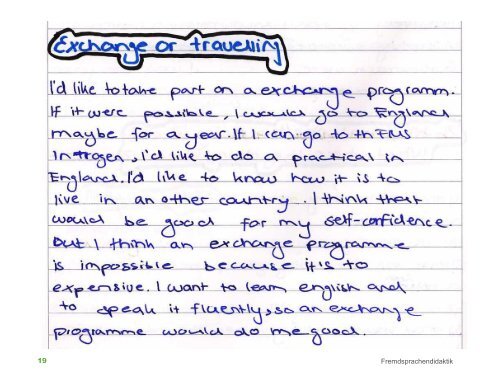 Exchange or travelling
I'd like to take part on a exchange programm.
If it were possible, I would go to England
maybe for a year. If I can go to th FMS
in Trogen, I'd like to do a practical in
England. I'd like to know how it is to
live in an other country. I think that
would be good for my self-confidence.
but I think an exchange programme
is impossible because it's to
expensive. I want to learn english and
to speak it fluently, so an exchange
programme would do me good.
19 Fremdsprachendidaktik